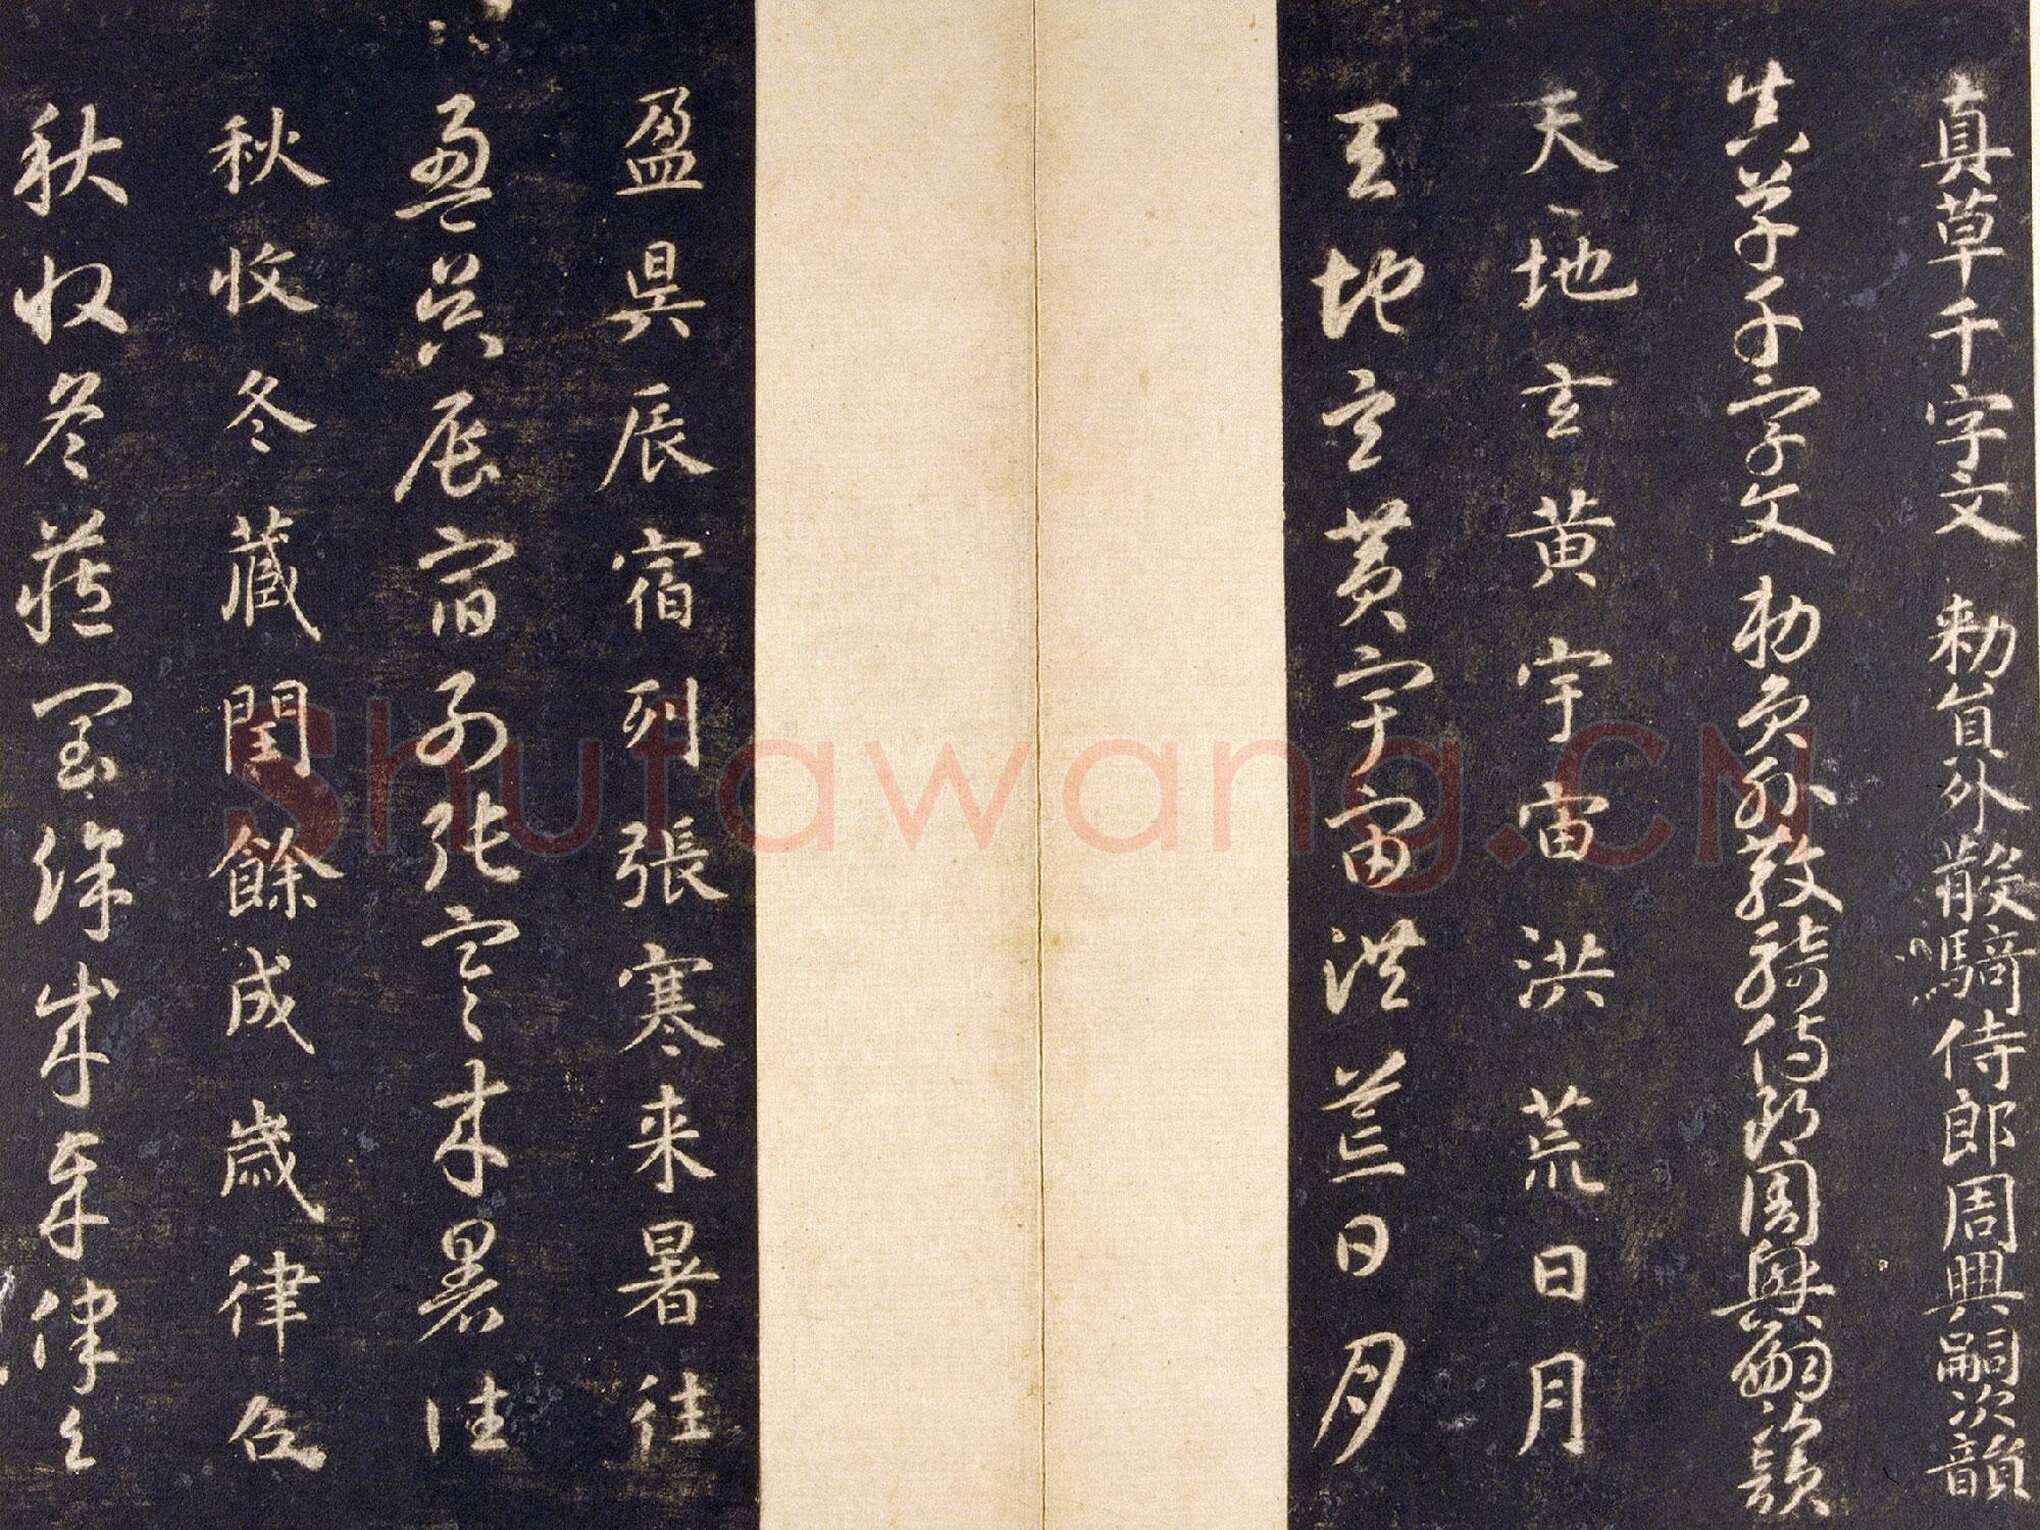 真草千字文 勅員外散騎侍郎周興嗣次韻
真草千字文 勅員外散騎侍郎周興嗣次韻
天地玄黄宇宙洪荒日月
天地玄黄宇宙洪荒日月
盈昃辰宿列張寒来暑往
盈昃辰宿列張寒来暑往
秋收冬蔵閏餘成歲律召
秋收冬蔵閏餘成歲律召
Shufawang.CN